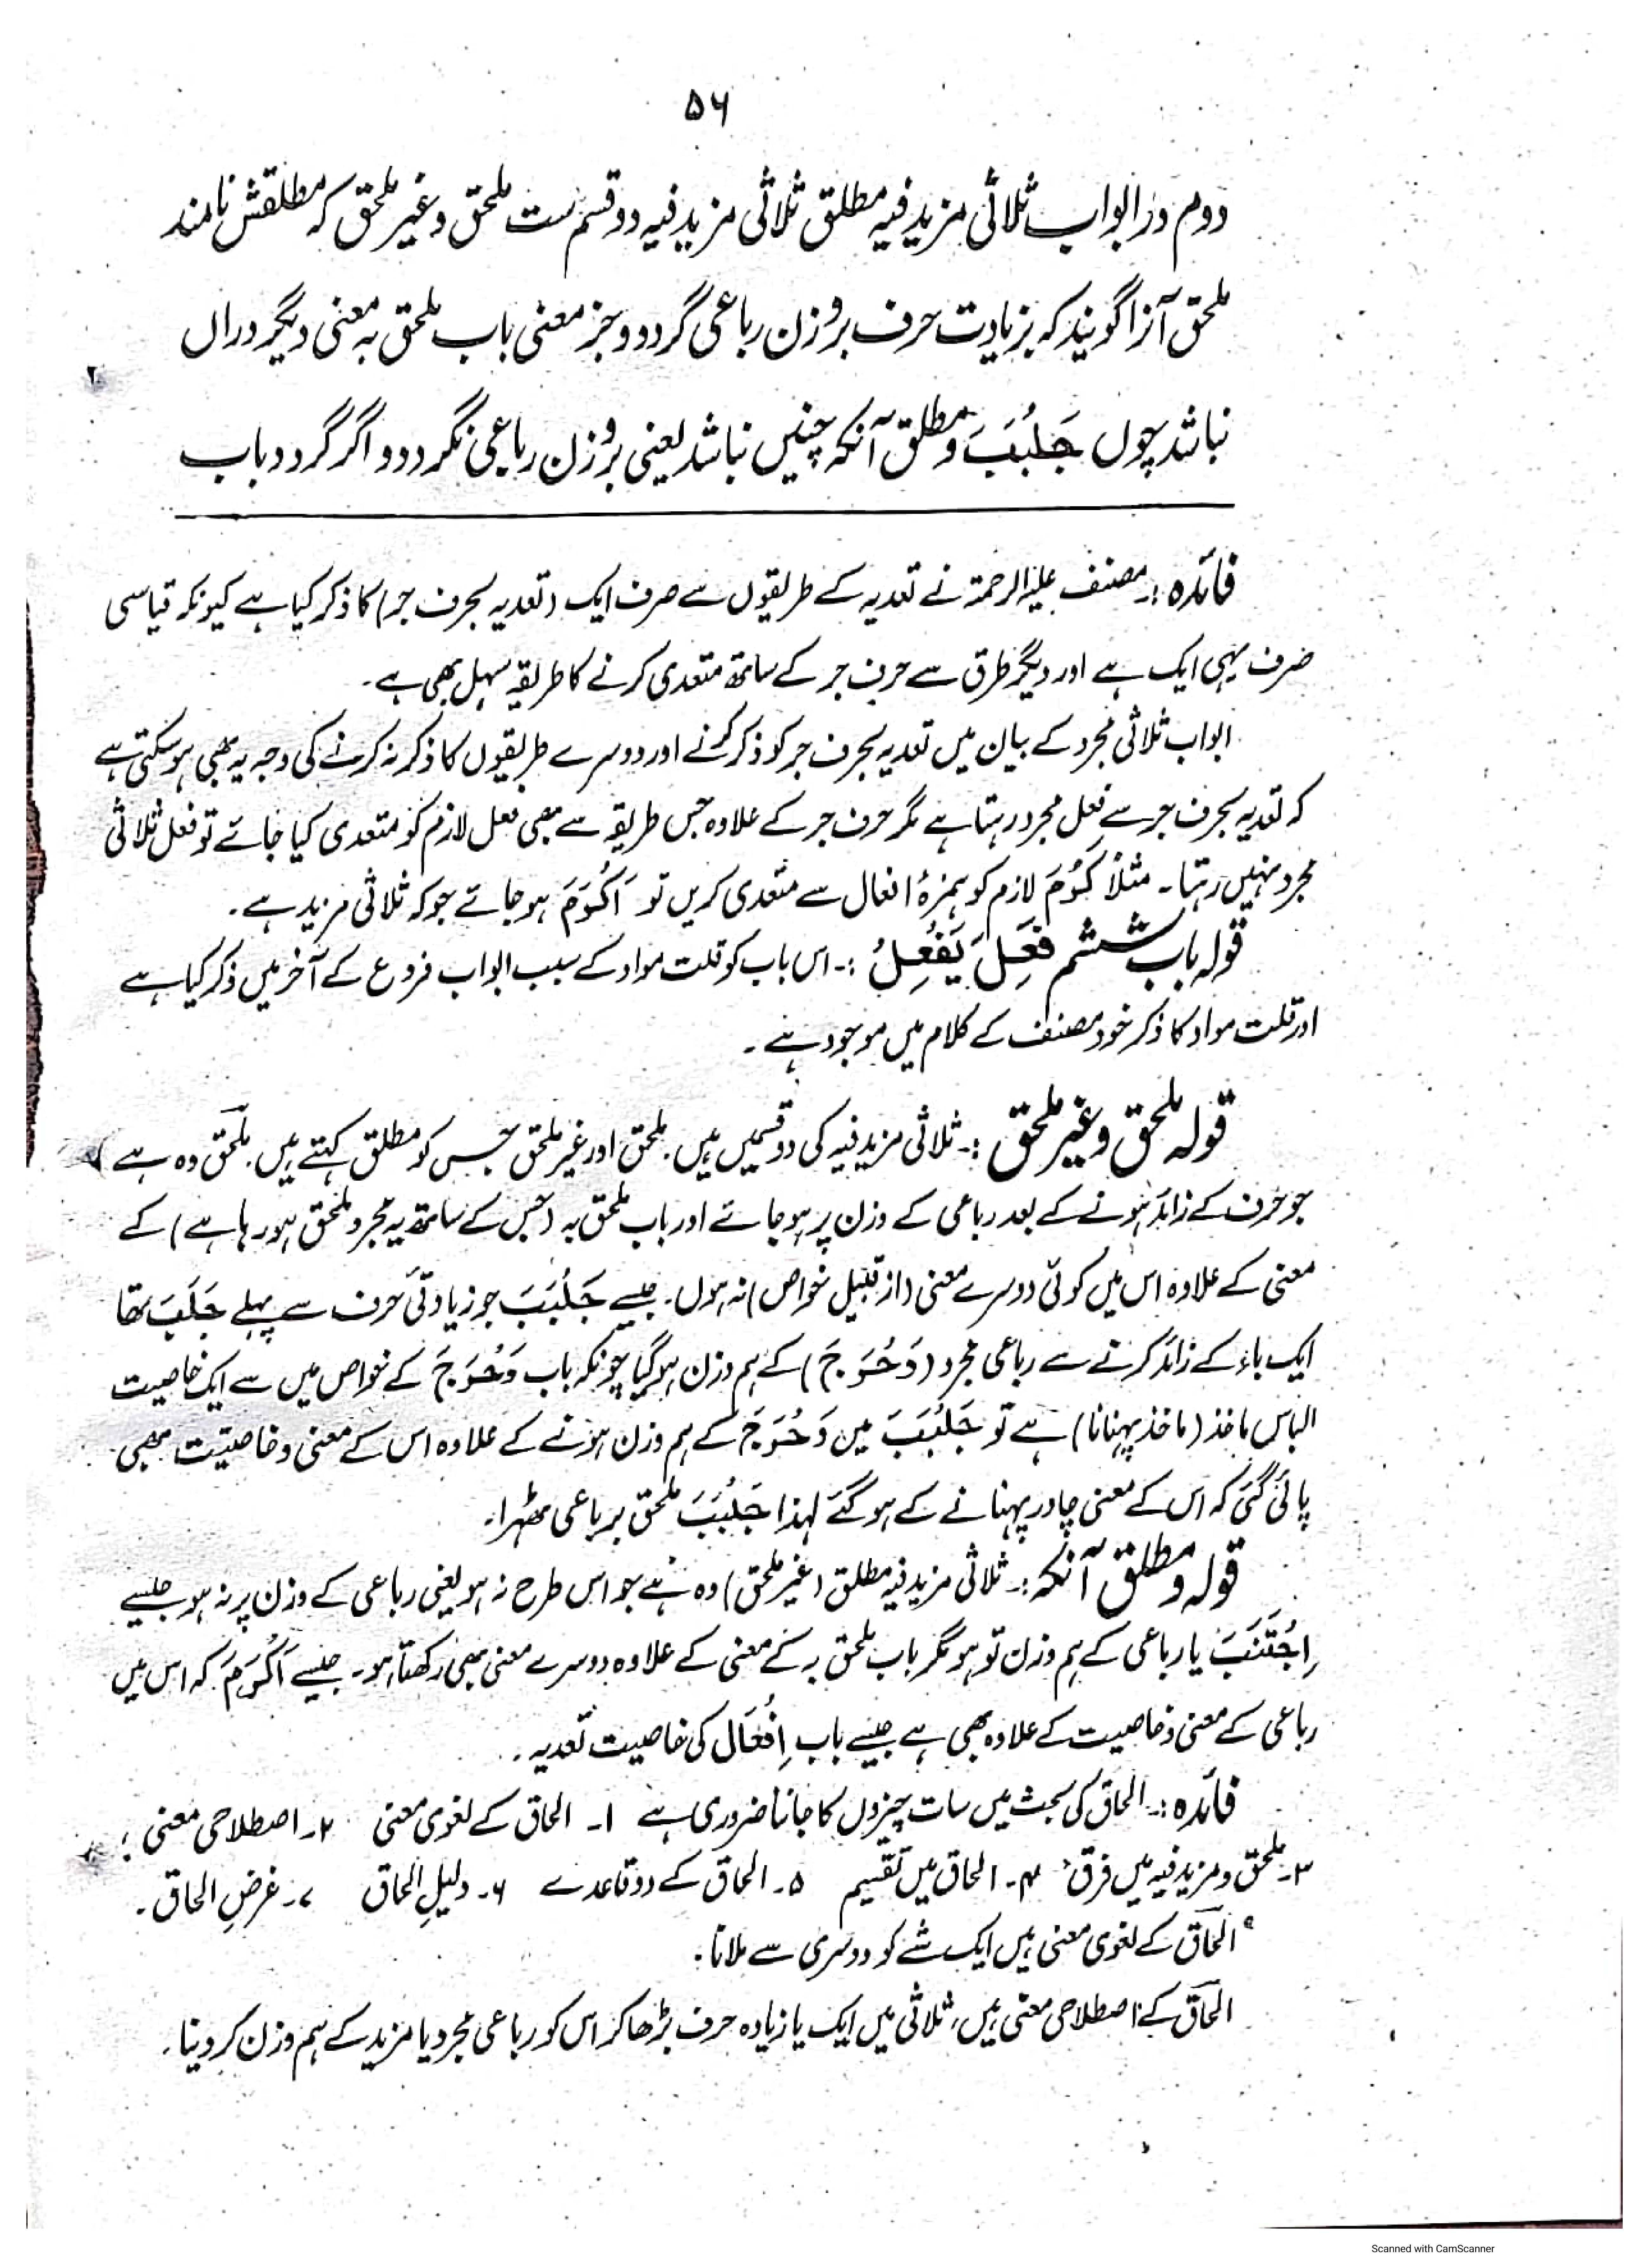 ۵۶
دوم در ابواب ثلاثی مزید فیہ مطلق ثلاثی مزید فیہ دو قسم ست ملحق و غیر ملحق کہ مطلقش نامند
ملحق آنرا گویند کہ بزیادت حرف بروزن رباعی گردد و جز معنی باب ملحق بہ معنی دیگر دراں
نباشد چوں جَلْبَبَ و مطلق آنکہ چنیں نباشد یعنی بروزن رباعی نگردد و اگر گردد باب
فائدہ :۔ مصنف علیہ الرحمۃ نے تعدیہ کے طریقوں سے صرف ایک (تعدیہ بحرف جر) کا ذکر کیا ہے کیونکہ قیاسی
صرف یہی ایک ہے اور دیگر طرق سے حرف جر کے ساتھ متعدی کرنے کا طریقہ سہل بھی ہے۔
ابواب ثلاثی مجرد کے بیان میں تعدیہ بحرف جر کو ذکر کرنے اور دوسرے طریقوں کا ذکر نہ کرنے کی وجہ یہ بھی ہو سکتی ہے
کہ تعدیہ بحرف جر سے فعل مجرد رہتا ہے مگر حرف جر کے علاوہ جس طریقہ سے بھی فعل لازم کو متعدی کیا جائے تو فعل ثلاثی
مجرد نہیں رہتا۔ مثلاً کَرُمَ لازم کو ہمزۂ افعال سے متعدی کریں تو اَکْرَمَ ہو جائے جو کہ ثلاثی مزید ہے۔
قولہ باب ششم فَعِلَ یَفْعِلُ :۔ اس باب کو قلت مواد کے سبب ابواب فروع کے آخر میں ذکر کیا ہے
اور قلت مواد کا ذکر خود مصنف کے کلام میں موجود ہے۔
قولہ ملحق و غیر ملحق :۔ ثلاثی مزید فیہ کی دو قسمیں ہیں۔ ملحق اور غیر ملحق جس کو مطلق کہتے ہیں۔ ملحق وہ ہے
جو حرف کے زائد ہونے کے بعد رباعی کے وزن پر ہو جائے اور باب ملحق بہ (جس کے ساتھ یہ مجرد ملحق ہو رہا ہے) کے
معنی کے علاوہ اس میں کوئی دوسرے معنی (از قبیل خواص) نہ ہوں۔ جیسے جَلْبَبَ جو زیادتی حرف سے پہلے جَلَبَ تھا
ایک باء کے زائد کرنے سے رباعی مجرد (دَحْرَجَ) کے ہم وزن ہو گیا چونکہ باب دَحْرَجَ کے خواص میں سے ایک خاصیت
الباس ماخذ (ماخذ پہنانا) ہے تو جَلْبَبَ میں دَحْرَجَ کے ہم وزن ہونے کے علاوہ اس کے معنی و خاصیّت بھی
پائی گئی کہ اس کے معنی چادر پہنانے کے ہو گئے لہذا جَلْبَبَ ملحق برباعی ٹھہرا۔
قولہ و مطلق آنکہ :۔ ثلاثی مزید فیہ مطلق (غیر ملحق) وہ ہے جو اس طرح نہ ہو یعنی رباعی کے وزن پر نہ ہو جیسے
اِجْتَنَبَ یا رباعی کے ہم وزن تو ہو مگر باب ملحق بہ کے معنی کے علاوہ دوسرے معنی بھی رکھتا ہو۔ جیسے اَکْرَمَ کہ اس میں
رباعی کے معنی و خاصیت کے علاوہ بھی ہے جیسے باب اِفْعَال کی خاصیت تعدیہ۔
فائدہ :۔ الحاق کی بحث میں سات چیزوں کا جاننا ضروری ہے ۱۔ الحاق کے لغوی معنی ۲۔ اصطلاحی معنی ؛
۳۔ ملحق و مزید فیہ میں فرق ۴۔ الحاق میں تقسیم ۵۔ الحاق کے دو قاعدے ۶۔ دلیلِ الحاق ۷۔ غرضِ الحاق۔
الحاق کے لغوی معنی ہیں ایک شے کو دوسری سے ملانا۔
الحاق کے اصطلاحی معنی ہیں، ثلاثی میں ایک یا زیادہ حرف بڑھا کر اس کو رباعی مجرد یا مزید کے ہم وزن کر دینا۔
Scanned with CamScanner